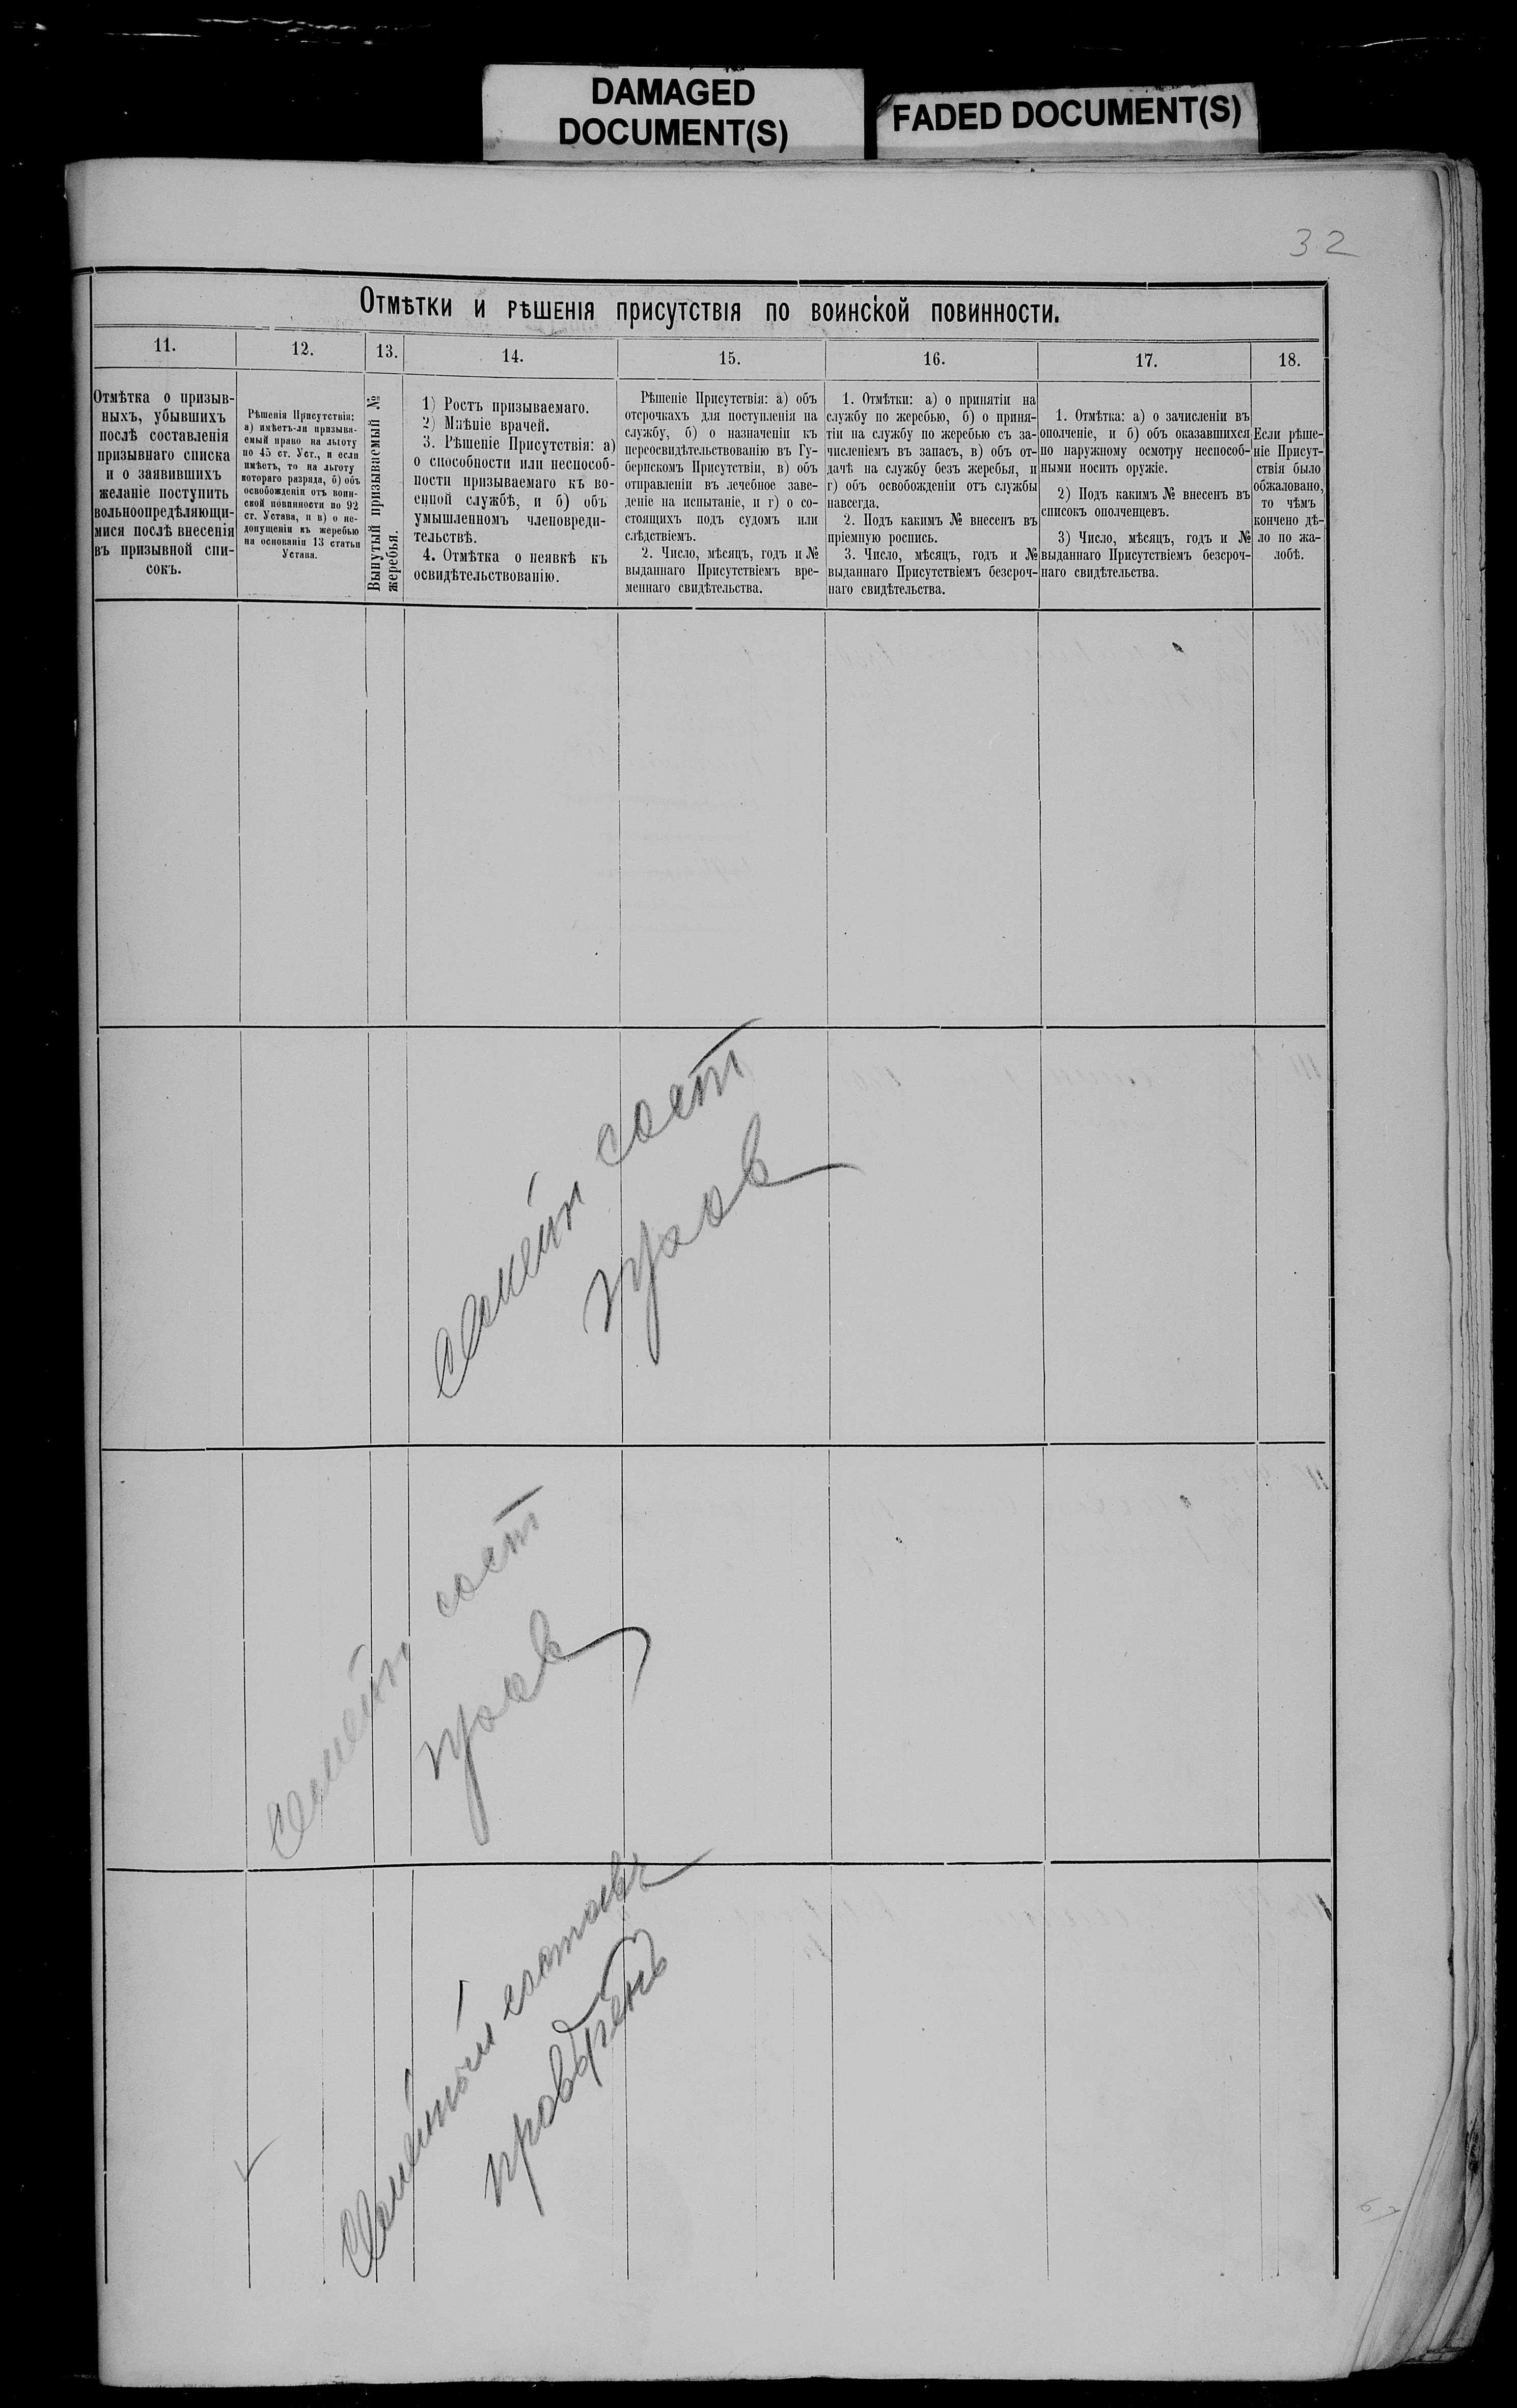 DAMAGED
DOCUMENT(S)
FADED DOCUMENT(S)
32
Отмѣтки и рѣшенія присутствія по воинской повинности.
11.
12.
13.
14.
15.
16.
17.
18.
Отмѣтка о призыв-
ныхъ, убывшихъ
послѣ составленія
призывнаго списка
и о заявившихъ
желаніе поступить
вольноопредѣляющи-
мися послѣ внесенія
въ призывной спи-
сокъ.
Рѣшенія Присутствія:
а) имѣетъ-ли призыва-
емый право на льготу
по 45 ст. Уст., и если
имѣетъ, то на льготу
котораго разряда, б) объ
освобожденіи отъ воин-
ской повинности по 92
ст. Устава, и в) о не-
допущеніи къ жеребью
на основаніи 13 статьи
Устава.
Вынутый призываемый №
жеребья.
1) Ростъ призываемаго.
2) Мнѣніе врачей.
3. Рѣшеніе Присутствія: а)
о способности или неспособ-
ности призываемаго къ во-
енной службѣ, и б) объ
умышленномъ членовреди-
тельствѣ.
4. Отмѣтка о неявкѣ къ
освидѣтельствованію.
Рѣшеніе Присутствія: а) объ
отсрочкахъ для поступленія на
службу, б) о назначеніи къ
переосвидѣтельствованію въ Гу-
бернскомъ Присутствіи, в) объ
отправленіи въ лечебное заве-
деніе на испытаніе, и г) о со-
стоящихъ подъ судомъ или
слѣдствіемъ.
2. Число, мѣсяцъ, годъ и №
выданнаго Присутствіемъ вре-
меннаго свидѣтельства.
1. Отмѣтки: а) о принятіи на
службу по жеребью, б) о приня-
тіи на службу по жеребью съ за-
численіемъ въ запасъ, в) объ от-
дачѣ на службу безъ жеребья, и
г) объ освобожденіи отъ службы
навсегда.
2. Подъ какимъ № внесенъ въ
пріемную роспись.
3. Число, мѣсяцъ, годъ и №
выданнаго Присутствіемъ безсроч-
наго свидѣтельства.
1. Отмѣтка: а) о зачисленіи въ
ополченіе, и б) объ оказавшихся
по наружному осмотру неспособ-
ными носить оружіе.
2) Подъ какимъ № внесенъ въ
списокъ ополченцевъ.
3) Число, мѣсяцъ, годъ и №
выданнаго Присутствіемъ безсроч-
наго свидѣтельства.
Если рѣше-
ніе Присут-
ствія было
обжаловано,
то чѣмъ
кончено дѣ-
ло по жа-
лобѣ.
семейн сост
пров
семейн сост
пров
Семейный составъ
провѣренъ